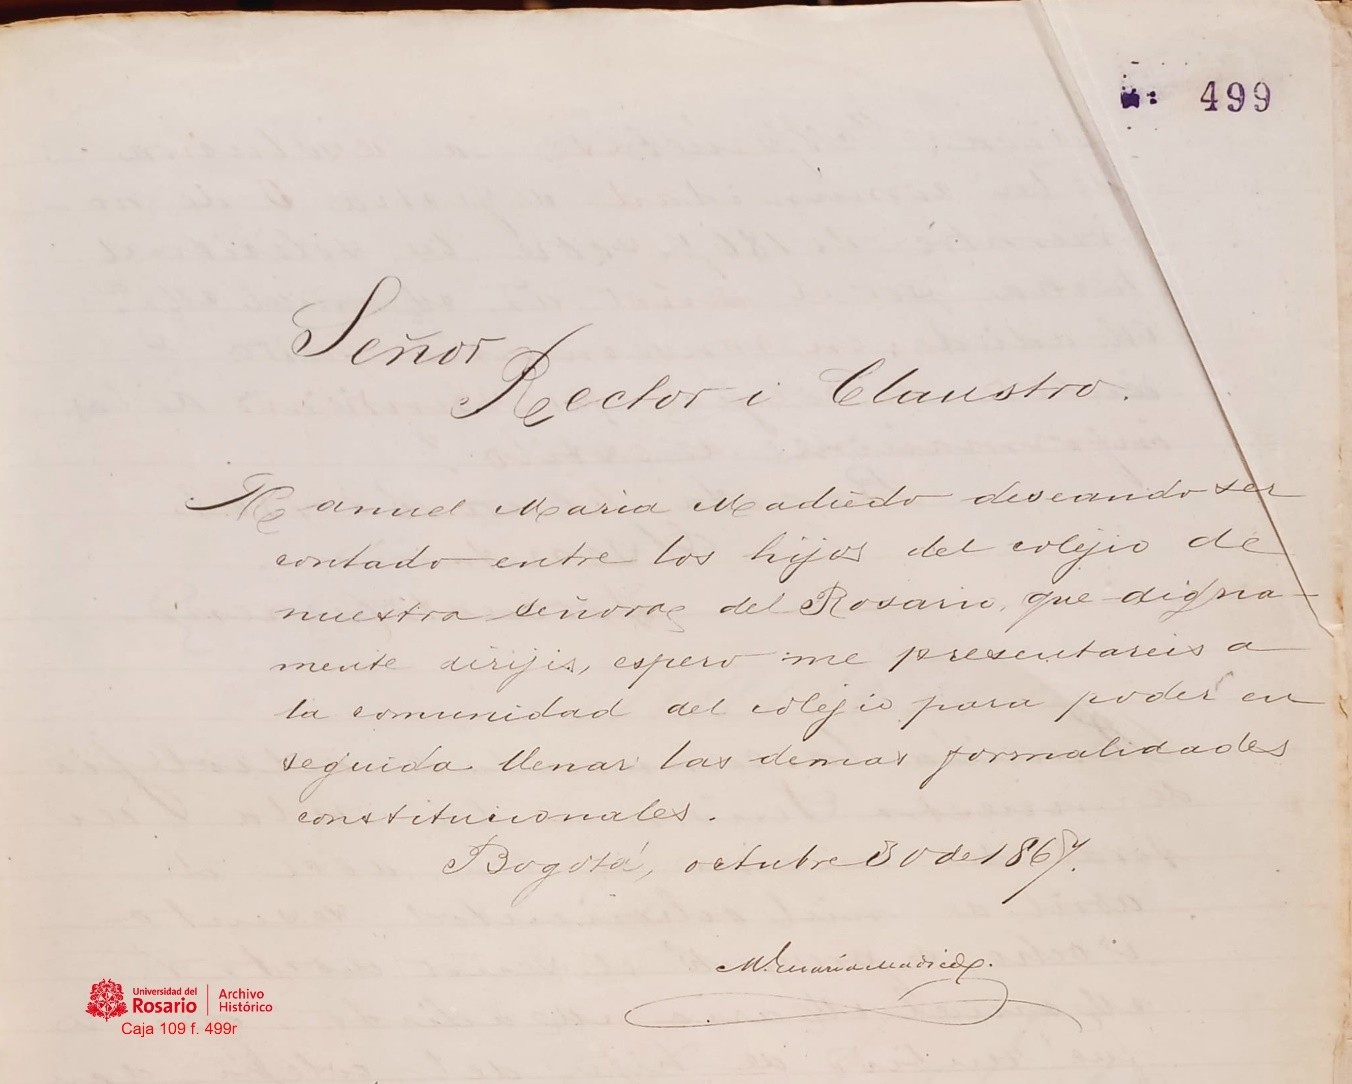 499
Señor
Rector i Claustro.
Manuel Maria Madiedo deseando ser
contado entre los hijos del colejio de
nuestra señora del Rosario, que digna-
mente dirijis, espero me presentareis a
la comunidad del colejio para poder en
seguida llenar las demas formalidades
constitucionales.
Bogotá, octubre 30 de 1867.
Ml. Maria Madiedo.
Universidad del
Rosario
Archivo
Histórico
Caja 109 f. 499r